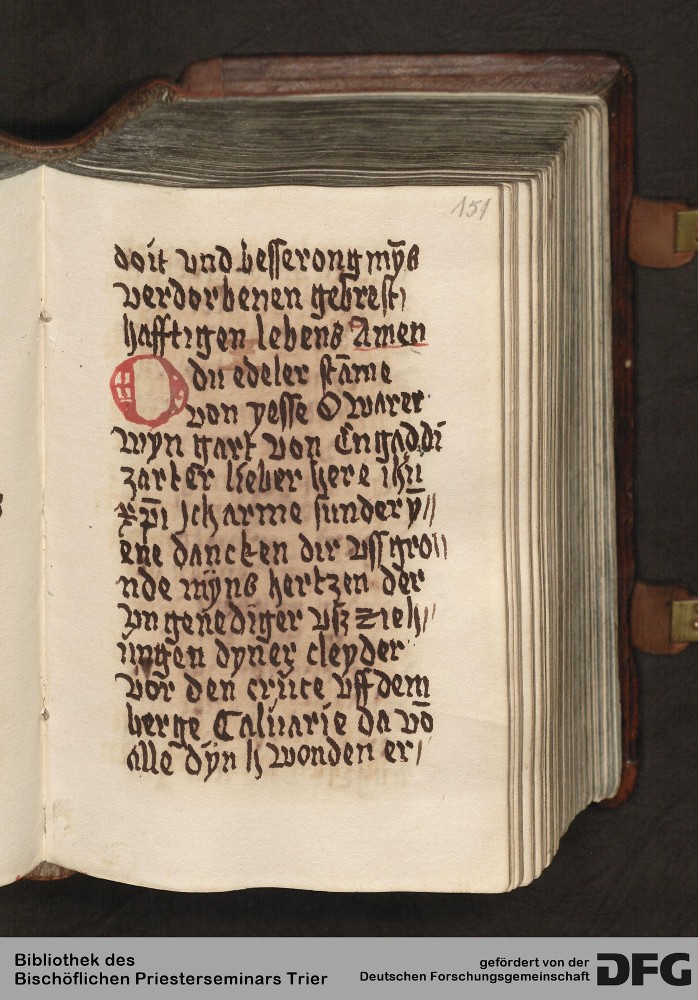 151
doit vnd besserong mÿs
verdorbenen gebrest/
hafftigen lebens Amen
O du edeler stāme
von yesse O warer
wyn gart von Engaddi
zarter lieber here ihū
xp̄i Jch arme sunder ȳ//
ene dancken dir vss gro//
nde mÿns hertzen der
vngenediger vßzieh//
ungen dyner cleyder
vor den cruce vff dem
berge Caluarie da vō
alle dÿn h wonden er/
Bibliothek des
Bischöflichen Priesterseminars Trier
gefördert von der
Deutschen Forschungsgemeinschaft
DFG